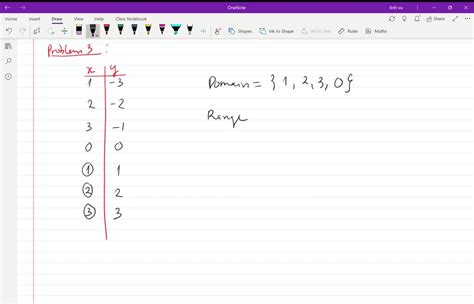 OneNote
linh vu
File Home Insert Draw View Help Class Notebook
Shapes Ink to Shape Ink to Text Ruler Maths
Problem 3 :
x y
1 -3
2 -2
3 -1
0 0
1 1
2 2
3 3
Domain = { 1, 2, 3, 0 }
Range